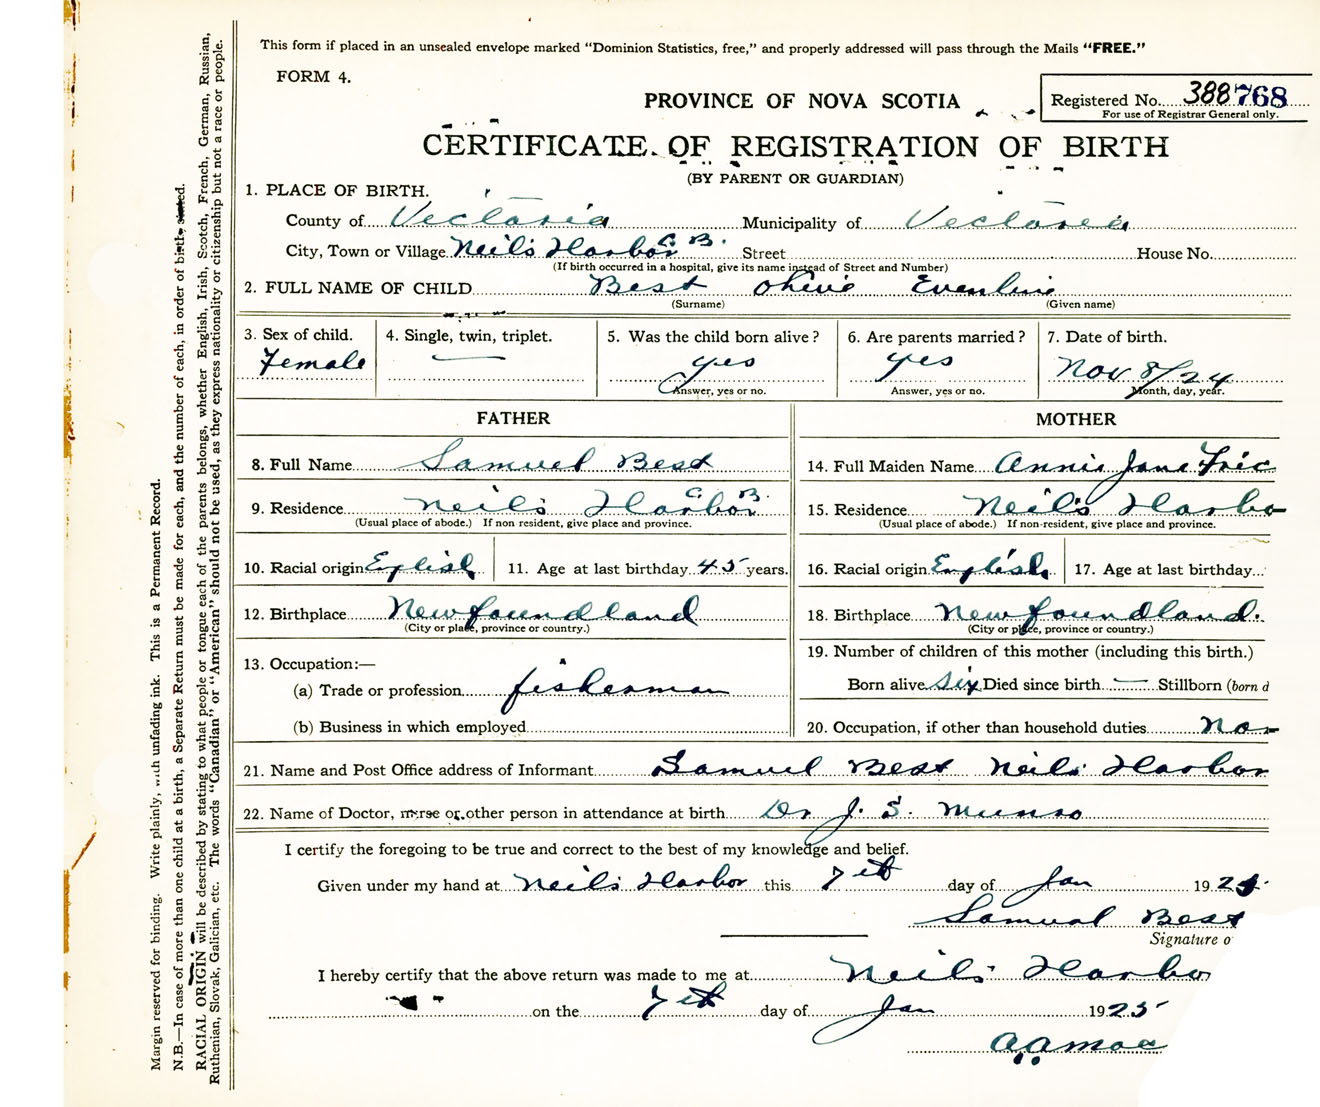 This form if placed in an unsealed envelope marked "Dominion Statistics, free," and properly addressed will pass through the Mails "FREE."
FORM 4.
Registered No. 388768
For use of Registrar General only.
PROVINCE OF NOVA SCOTIA
CERTIFICATE OF REGISTRATION OF BIRTH
(BY PARENT OR GUARDIAN)
1. PLACE OF BIRTH.
County of Victoria Municipality of Victoria
City, Town or Village Neil's Harbor C. B. Street House No.
(If birth occurred in a hospital, give its name instead of Street and Number)
2. FULL NAME OF CHILD Best Olivie Evenline
(Surname) (Given name)
3. Sex of child. 4. Single, twin, triplet. 5. Was the child born alive? 6. Are parents married? 7. Date of birth.
Female — yes yes Nov 8/24
Answer, yes or no. Answer, yes or no. Month, day, year.
FATHER MOTHER
8. Full Name Samuel Best 14. Full Maiden Name Annie Jane
9. Residence Neil's Harbor C. B. 15. Residence Neil's Harbo
(Usual place of abode.) If non resident, give place and province. (Usual place of abode.) If non-resident, give place and province.
10. Racial origin English 11. Age at last birthday 45 years. 16. Racial origin English 17. Age at last birthday
12. Birthplace Newfoundland 18. Birthplace Newfoundland.
(City or place, province or country.) (City or place, province or country.)
13. Occupation:— 19. Number of children of this mother (including this birth.)
(a) Trade or profession fisherman Born alive six Died since birth — Stillborn (born d
(b) Business in which employed 20. Occupation, if other than household duties Non
21. Name and Post Office address of Informant Samuel Best Neil's Harbor
22. Name of Doctor, nurse or other person in attendance at birth Dr J. S. Munro
I certify the foregoing to be true and correct to the best of my knowledge and belief.
Given under my hand at Neil's Harbor this 7th day of Jan 1925
Samual Best
Signature o
I hereby certify that the above return was made to me at Neil's Harbo
on the 7th day of Jan 1925
Margin reserved for binding. Write plainly, with unfading ink. This is a Permanent Record.
N.B.—In case of more than one child at a birth, a Separate Return must be made for each, and the number of each, in order of birth stated.
RACIAL ORIGIN will be described by stating to what people or tongue each of the parents belongs, whether English, Irish, Scotch, French, German, Russian,
Ruthenian, Slovak, Galician, etc. The words "Canadian" or "American" should not be used, as they express nationality or citizenship but not a race or people.